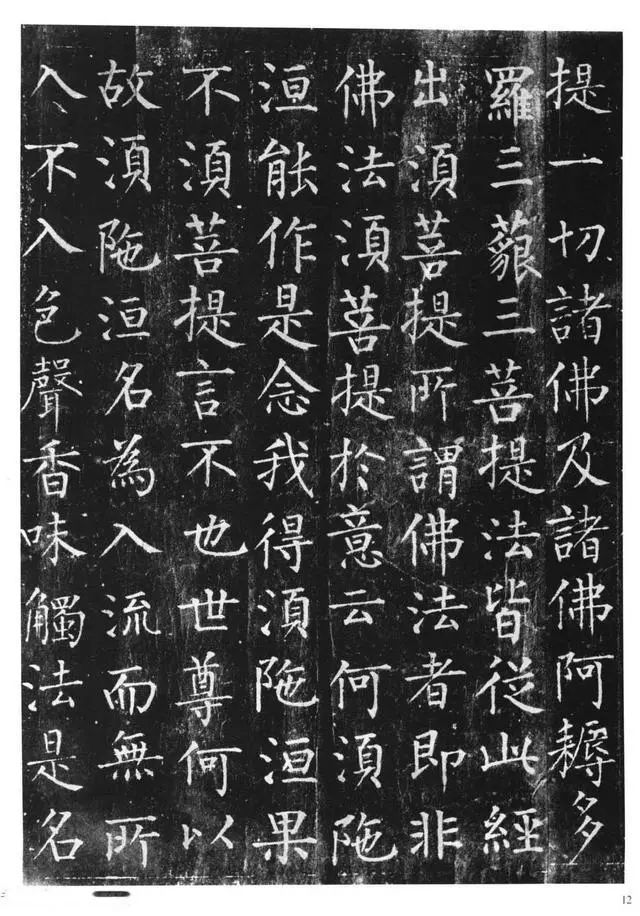 提一切諸佛及諸佛阿耨多
羅三藐三菩提法皆從此經
出須菩提所謂佛法者即非
佛法須菩提於意云何須陁
洹能作是念我得須陁洹果
不須菩提言不也世尊何以
故須陁洹名為入流而無所
入不入色聲香味觸法是名
12